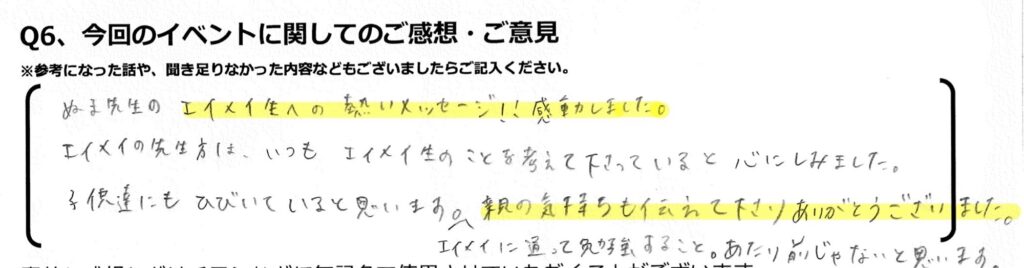 Q6、今回のイベントに関してのご感想・ご意見
※参考になった話や、聞き足りなかった内容などもございましたらご記入ください。
ぬま先生の エイメイ生への 熱いメッセージ!! 感動しました。
エイメイの先生方は、いつも エイメイ生のことを考えて下さっていると 心にしみました。
子供達にも ひびいていると思います。親の気持ちも伝えて下さり ありがとうございました。
エイメイに通って勉強すること。あたり前じゃないと思います。